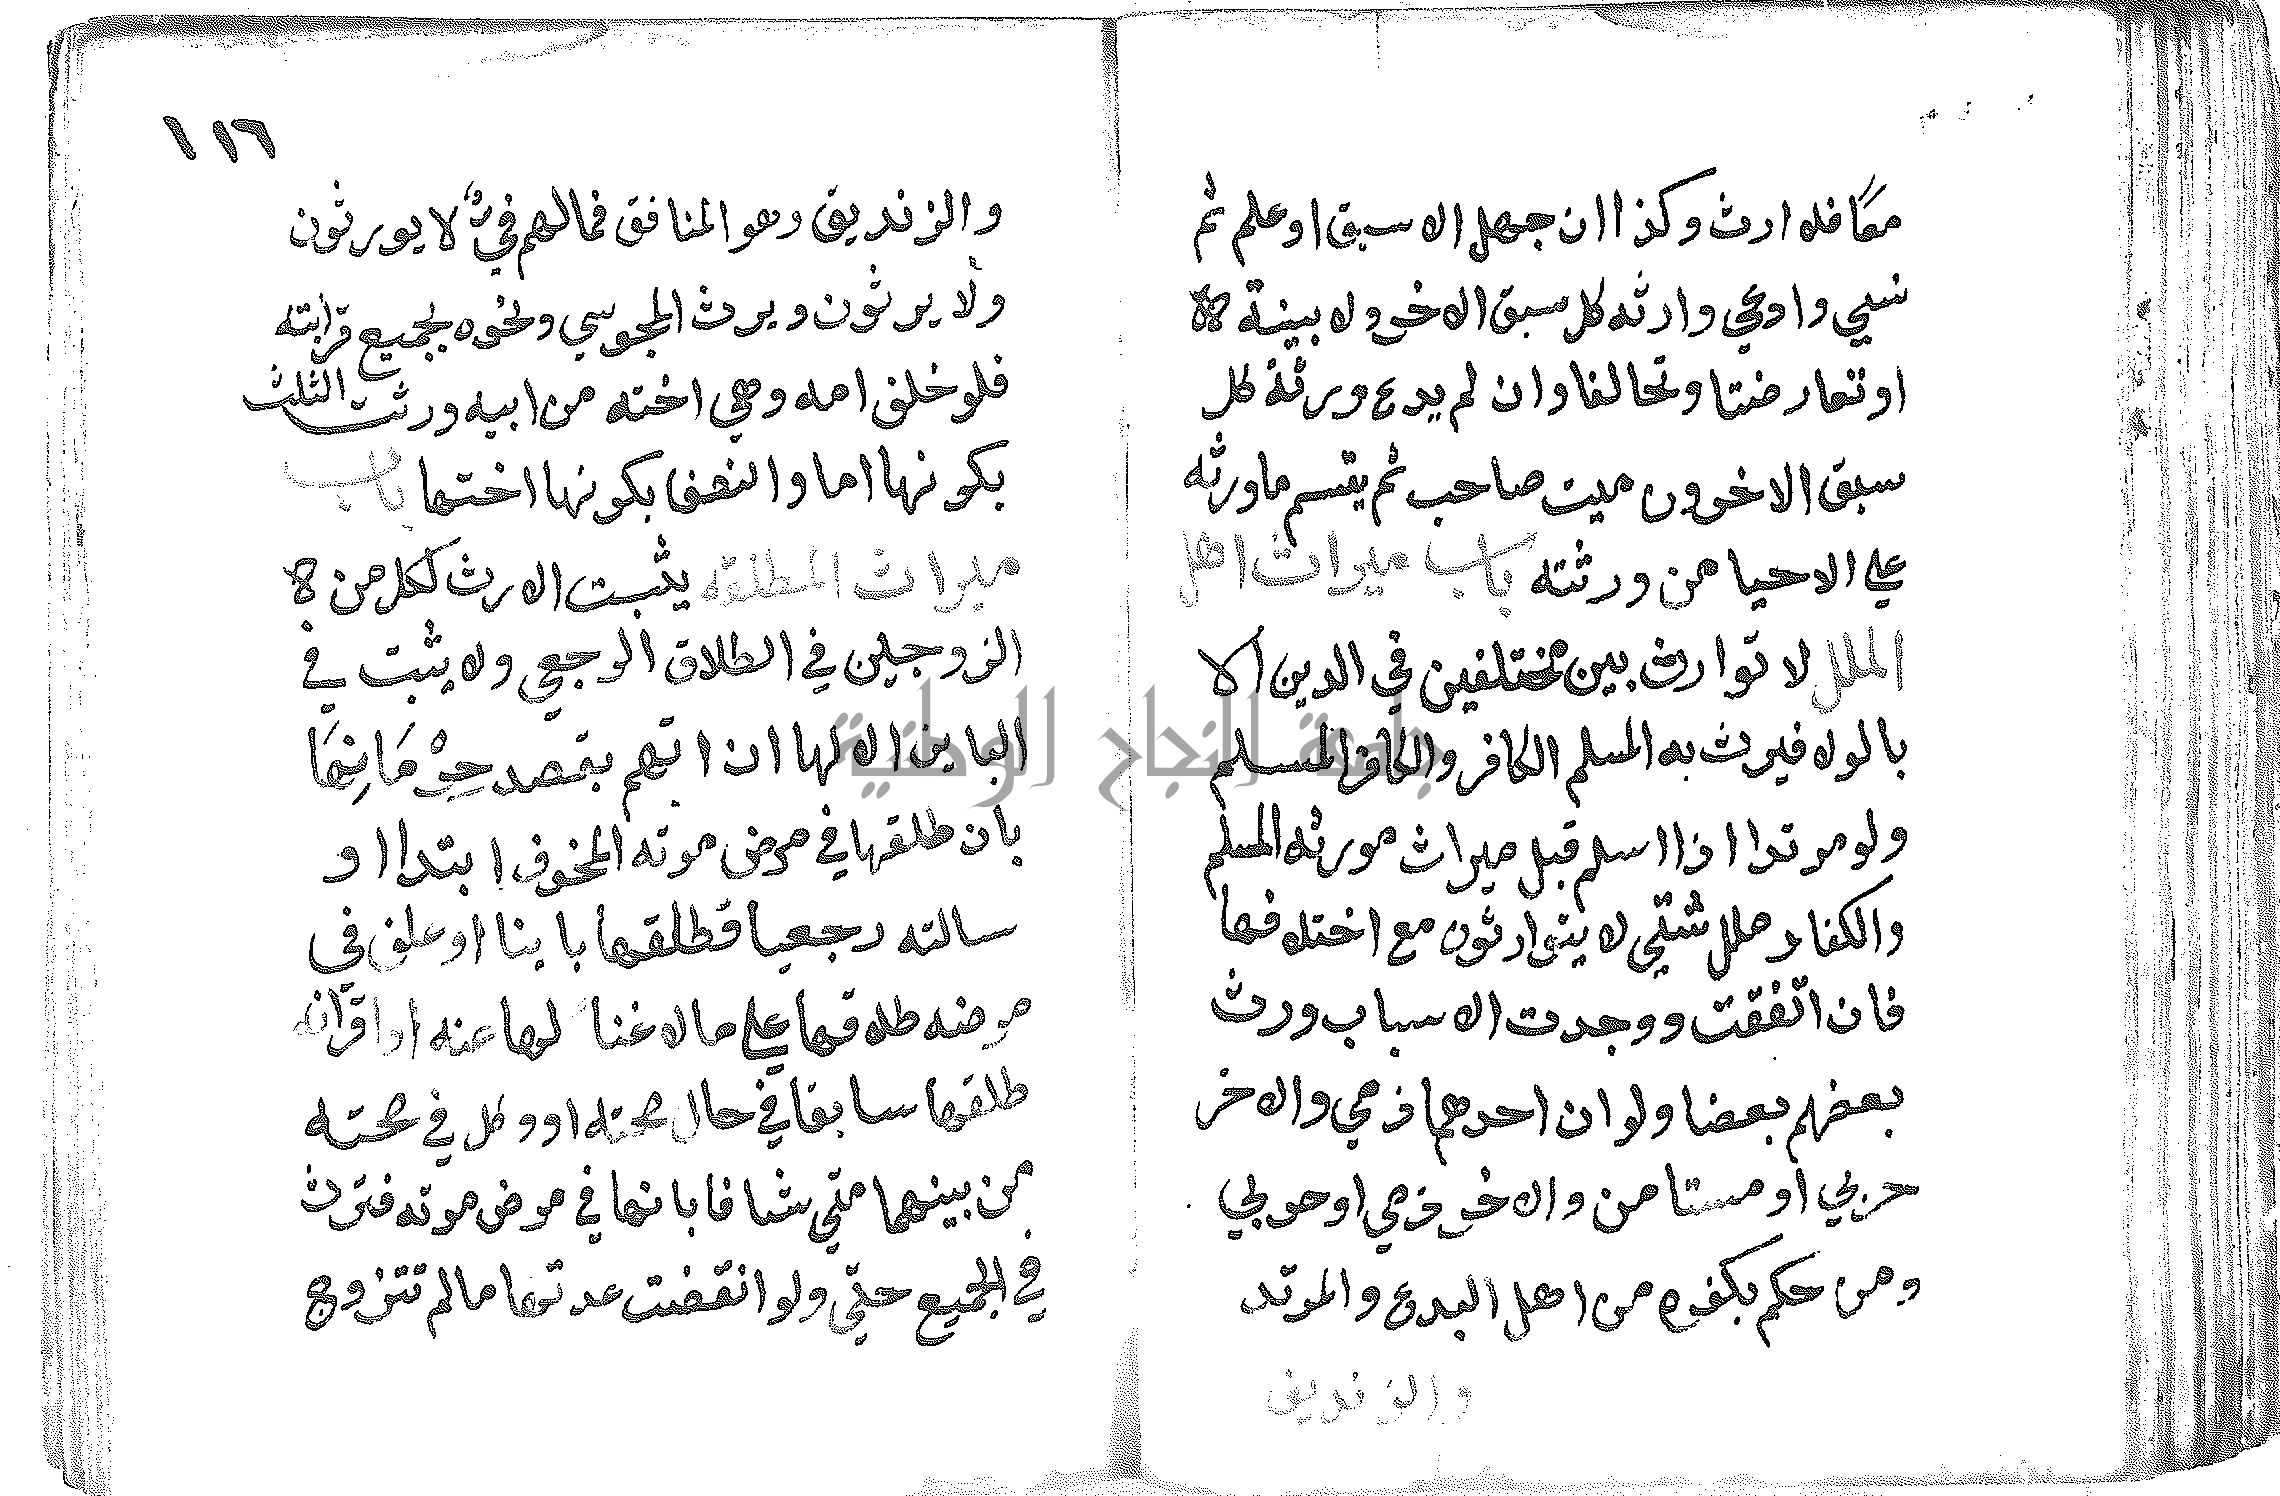 معا فلا ارث وكذا ان جهل الاسبق او علم ثم
نسي وادعي وارثه كل سبق الاخر ولا بينة
او تعارضتا وتحالفا وان لم يدع ورثة كل
سبق الاخر ورث ميت صاحب ثم يقسم ما ورثه
علي الاحيا من ورثته باب ميراث اهل
الملل لا توارث بين مختلفين في الدين الا
بالولا فيرث به المسلم الكافر والكافر المسلم
ولو مرتدا اذا اسلم قبل ميراث مورثه المسلم
والكفار ملل شتي لا يتوارثون مع اختلافها
فان اتفقت ووجدت الاسباب ورث
بعضهم بعضا ولو ان احدهما ذمي والاخر
حربي او مستامن والاخر ذمي او حربي
ومن حكم بكفره من اهل البدع والمرتد
والزنديق
١١٦
والزنديق وهو المنافق فمالهم فيء لا يورثون
ولا يرثون ويرث المجوسي ونحوه بجميع قرابته
فلو خلف امه وهي اخته من ابيه ورثت الثلث
بكونها اما والنصف بكونها اختها باب
ميراث المطلقة يثبت الارث لكل من
الزوجين في الطلاق الرجعي ولا يثبت في
الباين الا لها ان اتهم بقصد حِرْمَانِهَا
بان طلقها في مرض موته المخوف ابتدا او
سالته رجعيا فطلقها باينا او علق في
مرضه طلاقها علي ما لا غنا لها عنه او اقر انه
طلقها سابقا في حال صحته او وكل في صحته
من يبينها متي شا فابانها في مرض موته فترث
في الجميع حتي ولو انقضت عدتها ما لم تتزوج
جامعة النجاح الوطنية